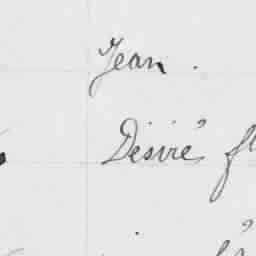 Jean.
Désiré